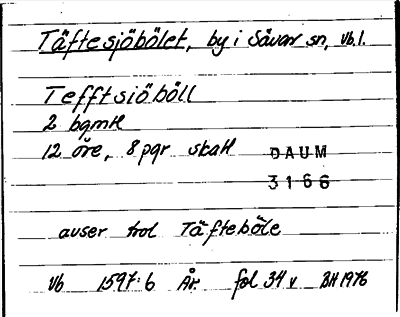 Täftesjöbölet, by i Sävar sn, Vb.l.
Tefftsiöböll
2 bgmtl
12 öre, 8 pgr skatt
DAUM
3166
avser trol Täfteböle
Vb 1597:6 År fol 34 v BH 1976